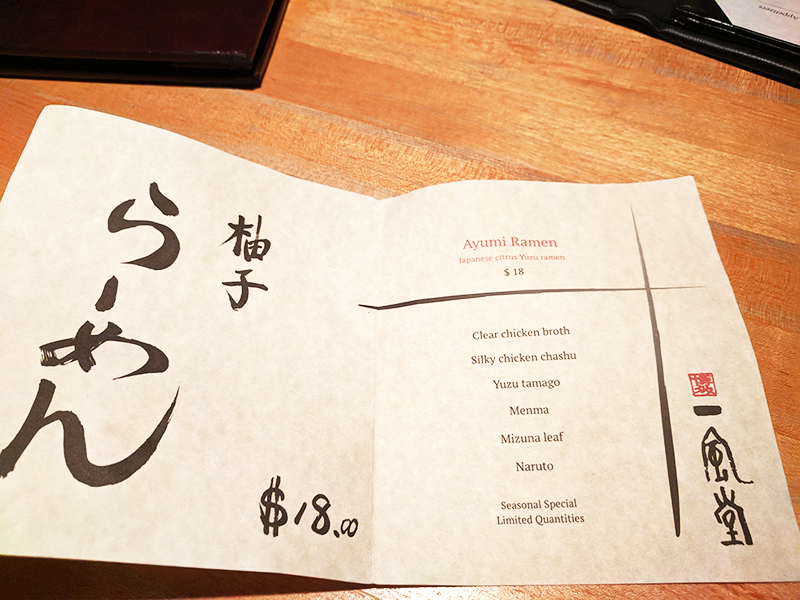 Appetizers
らーめん
柚子
$18.00
Ayumi Ramen
Japanese citrus Yuzu ramen
$ 18
Clear chicken broth
Silky chicken chashu
Yuzu tamago
Menma
Mizuna leaf
Naruto
Seasonal Special
Limited Quantities
博多
一風堂